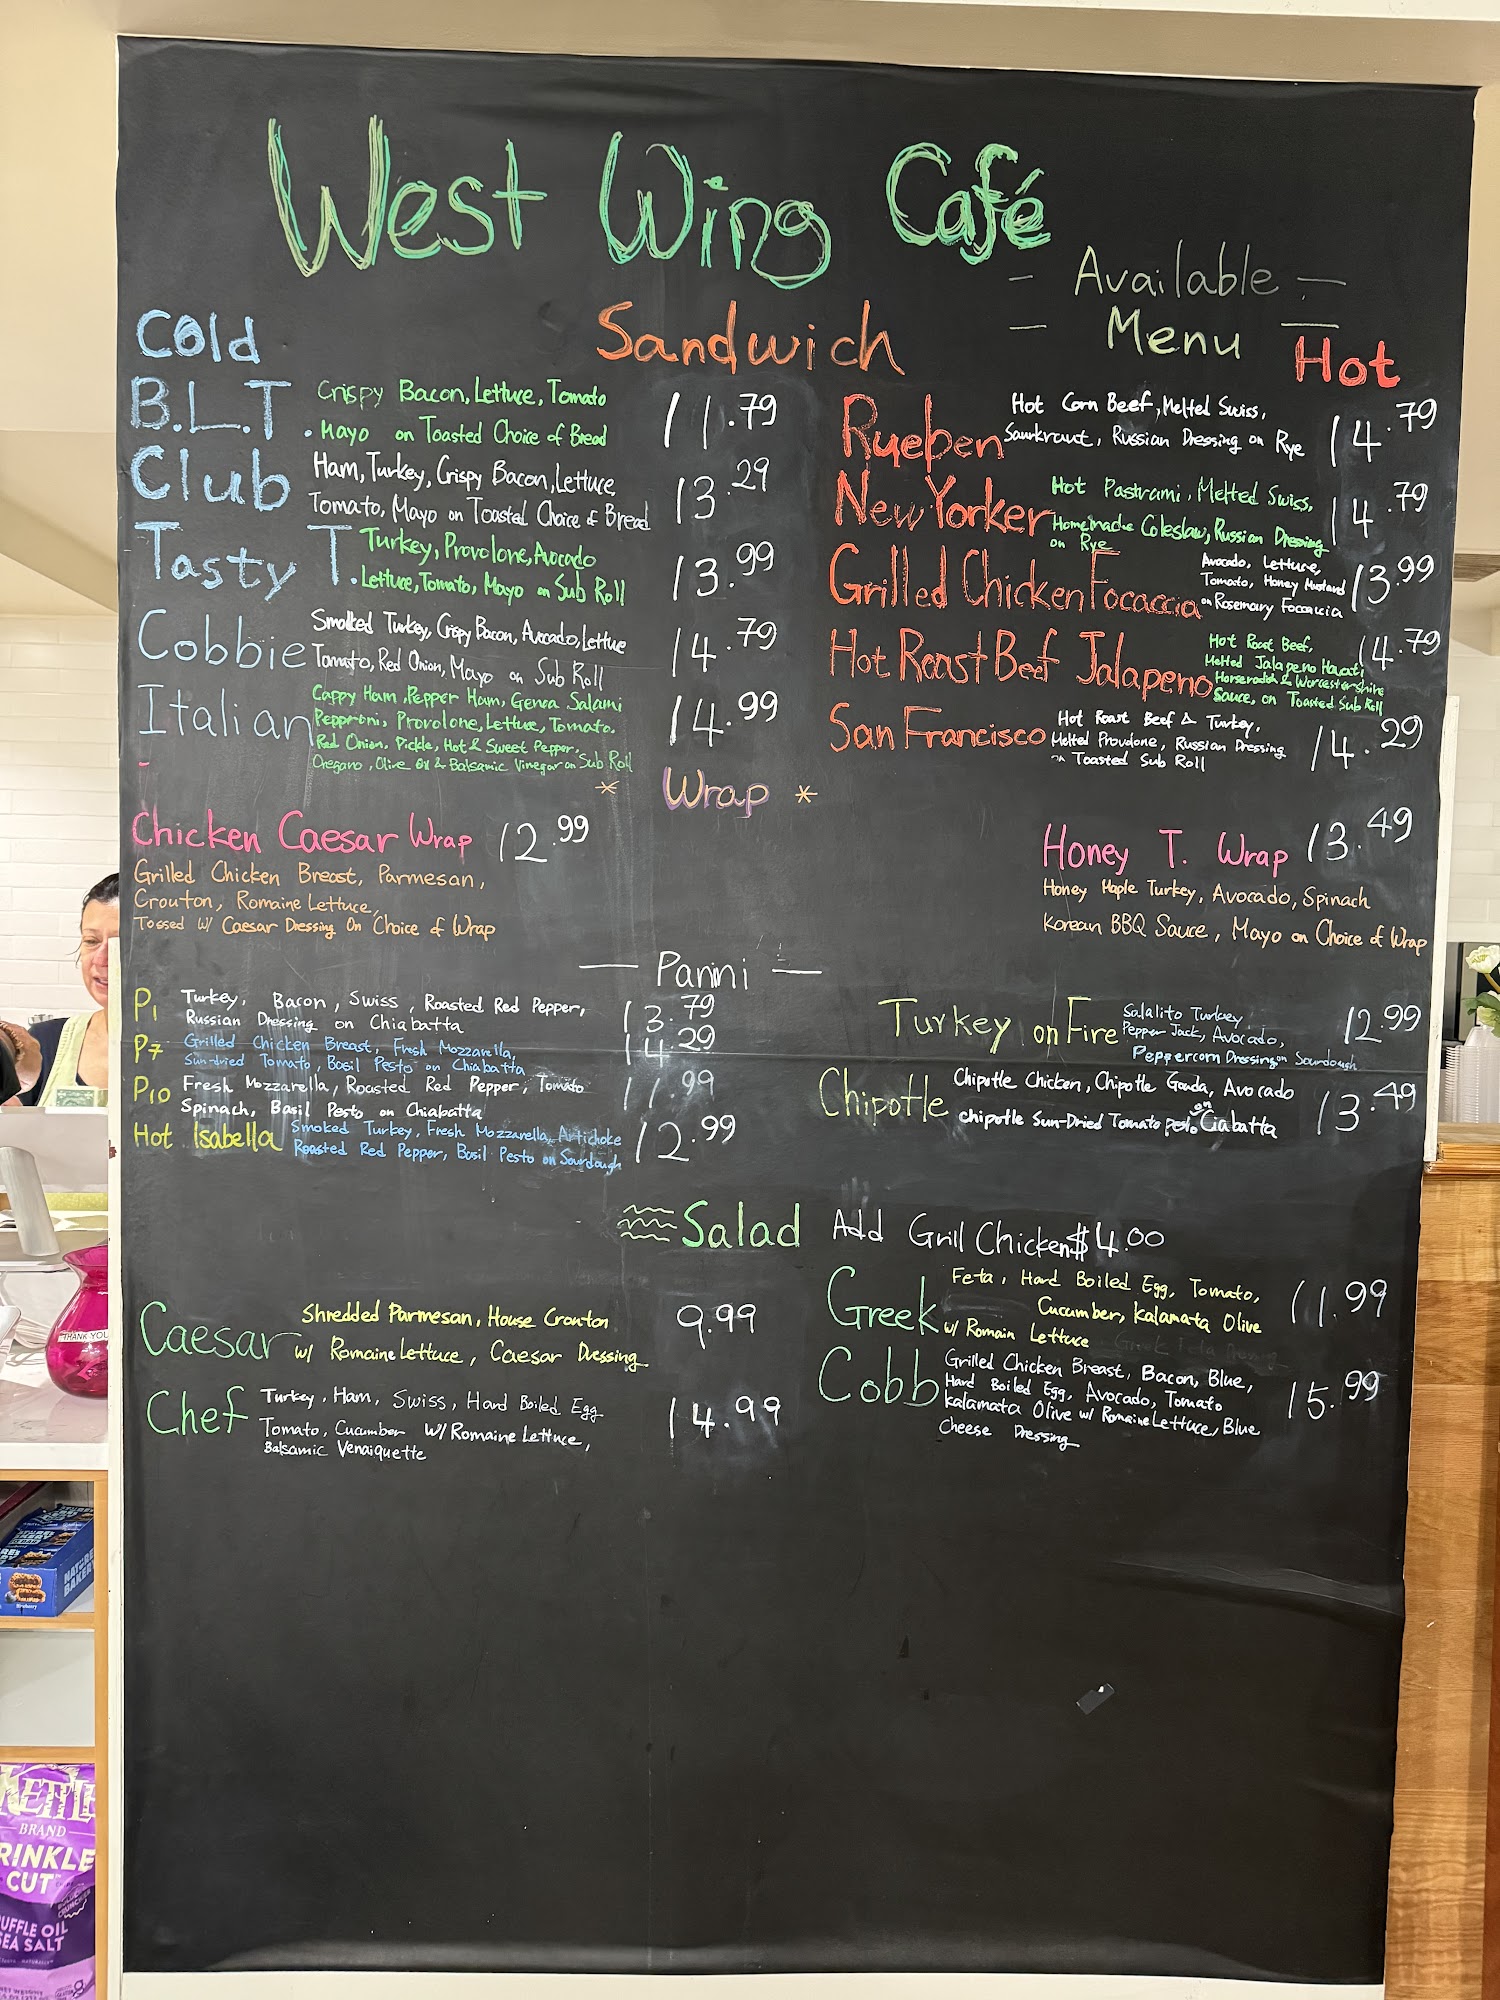 West Wing Café
- Available -
- Menu -
Sandwich
Cold
B.L.T. Crispy Bacon, Lettuce, Tomato 11.79
Mayo on Toasted Choice of Bread
Club Ham, Turkey, Crispy Bacon, Lettuce, 13.29
Tomato, Mayo on Toasted Choice of Bread
Tasty T. Turkey, Provolone, Avocado 13.99
Lettuce, Tomato, Mayo on Sub Roll
Cobbie Smolked Turkey, Crispy Bacon, Avocado, Lettuce 14.79
Tomato, Red Onion, Mayo on Sub Roll
Italian Cappy Ham, Pepper Ham, Genoa Salami 14.99
Pepperoni, Provolone, Lettuce, Tomato.
Red Onion, Pickle, Hot & Sweet Pepper,
Oregano, Olive Oil & Balsamic Vinegar on Sub Roll
Hot
Rueben Hot Corn Beef, Melted Swiss, 14.79
Saurkraut, Russian Dressing on Rye
New Yorker Hot Pastrami, Melted Swiss, 14.79
Homemade Coleslaw, Russian Dressing
on Rye
Grilled Chicken Focaccia Avocado, Lettuce, 13.99
Tomato, Honey Mustard
on Rosemary Focaccia
Hot Roast Beef Jalapeno Hot Roast Beef, 14.79
Melted Jalapeno Havati
Horseradish & Worcestershire
Sauce, on Toasted Sub Roll
San Francisco Hot Roast Beef & Turkey, 14.29
Melted Provolone, Russian Dressing
on Toasted Sub Roll
* Wrap *
Chicken Caesar Wrap 12.99
Grilled Chicken Breast, Parmesan,
Crouton, Romaine Lettuce,
Tossed w/ Caesar Dressing On Choice of Wrap
Honey T. Wrap 13.49
Honey Maple Turkey, Avocado, Spinach
Korean BBQ Sauce, Mayo on Choice of Wrap
— Panini —
P1 Turkey, Bacon, Swiss, Roasted Red Pepper, 13.79
Russian Dressing on Chiabatta
P7 Grilled Chicken Breast, Fresh Mozzarella, 14.29
Sun-dried Tomato, Basil Pesto on Chiabatta
P10 Fresh Mozzarella, Roasted Red Pepper, Tomato 11.99
Spinach, Basil Pesto on Chiabatta
Hot Isabella Smoked Turkey, Fresh Mozzarella, Artichoke 12.99
Roasted Red Pepper, Basil Pesto on Sourdough
Turkey on Fire Salalito Turkey 12.99
Pepper Jack, Avocado,
Peppercorn Dressing on Sourdough
Chipotle Chipotle Chicken, Chipotle Gouda, Avocado 13.49
chipotle Sun-Dried Tomato pesto on Ciabatta
Salad Add Grill Chicken $4.00
Caesar Shredded Parmesan, House Crouton 9.99
w/ Romaine Lettuce, Caesar Dressing
Chef Turkey, Ham, Swiss, Hard Boiled Egg 14.99
Tomato, Cucumber w/ Romaine Lettuce,
Balsamic Venaiquette
Greek Feta, Hard Boiled Egg, Tomato, 11.99
Cucumber, Kalamata Olive
w/ Romain Lettuce
Cobb Grilled Chicken Breast, Bacon, Blue, 15.99
Hard Boiled Egg, Avocado, Tomato
Kalamata Olive w/ Romaine Lettuce, Blue
Cheese Dressing
THANK YOU
KETTLE
BRAND
RINKLE
CUT
UFFLE OIL
SEA SALT